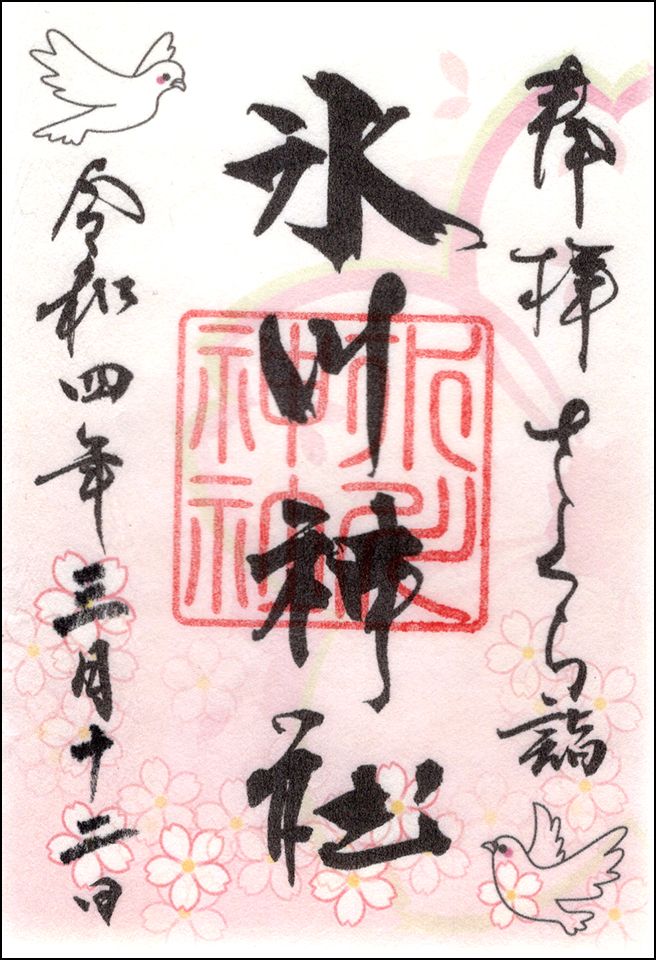 奉拝 さくら詣
氷川神社
令和四年三月十二日